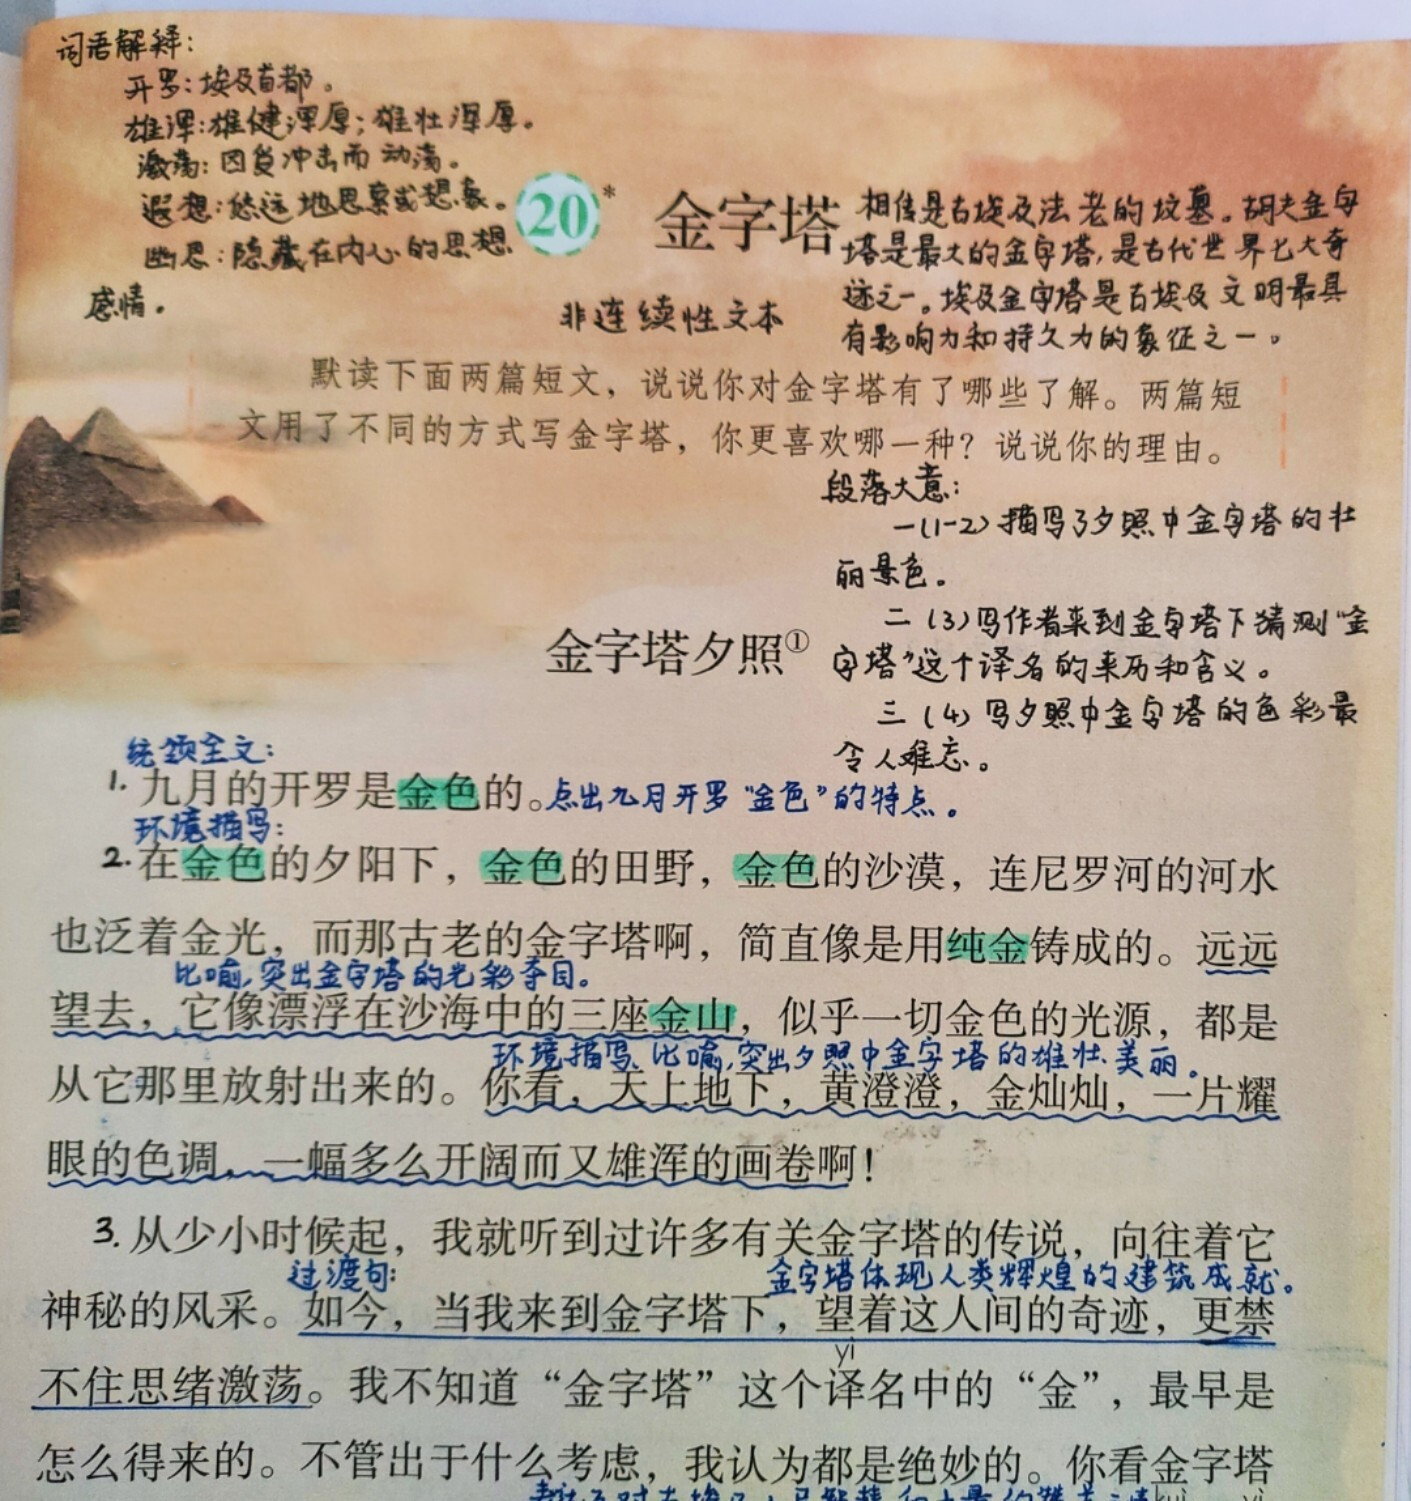 词语解释：
开罗：埃及首都。
雄浑：雄健浑厚；雄壮浑厚。
激荡：因受冲击而动荡。
遐想：悠远地思索或想象。
幽思：隐藏在内心的思想
感情。
20*
金字塔
相传是古埃及法老的坟墓。胡夫金字
塔是最大的金字塔，是古代世界七大奇
迹之一。埃及金字塔是古埃及文明最具
有影响力和持久力的象征之一。
非连续性文本
默读下面两篇短文，说说你对金字塔有了哪些了解。两篇短
文用了不同的方式写金字塔，你更喜欢哪一种？说说你的理由。
段落大意：
一(1-2)描写了夕照中金字塔的壮
丽景色。
二(3)写作者来到金字塔下猜测“金
字塔”这个译名的来历和含义。
三(4)写夕照中金字塔的色彩最
令人难忘。
金字塔夕照①
统领全文：
1.九月的开罗是金色的。点出九月开罗“金色”的特点。
环境描写：
2.在金色的夕阳下，金色的田野，金色的沙漠，连尼罗河的河水
也泛着金光，而那古老的金字塔啊，简直像是用纯金铸成的。远远
比喻，突出金字塔的光彩夺目。
望去，它像漂浮在沙海中的三座金山，似乎一切金色的光源，都是
环境描写、比喻，突出夕照中金字塔的雄壮、美丽。
从它那里放射出来的。你看，天上地下，黄澄澄，金灿灿，一片耀
眼的色调，一幅多么开阔而又雄浑的画卷啊！
3.从少小时候起，我就听到过许多有关金字塔的传说，向往着它
过渡句：
金字塔体现人类辉煌的建筑成就。
神秘的风采。如今，当我来到金字塔下，望着这人间的奇迹，更禁
yì
不住思绪激荡。我不知道“金字塔”这个译名中的“金”，最早是
怎么得来的。不管出于什么考虑，我认为都是绝妙的。你看金字塔